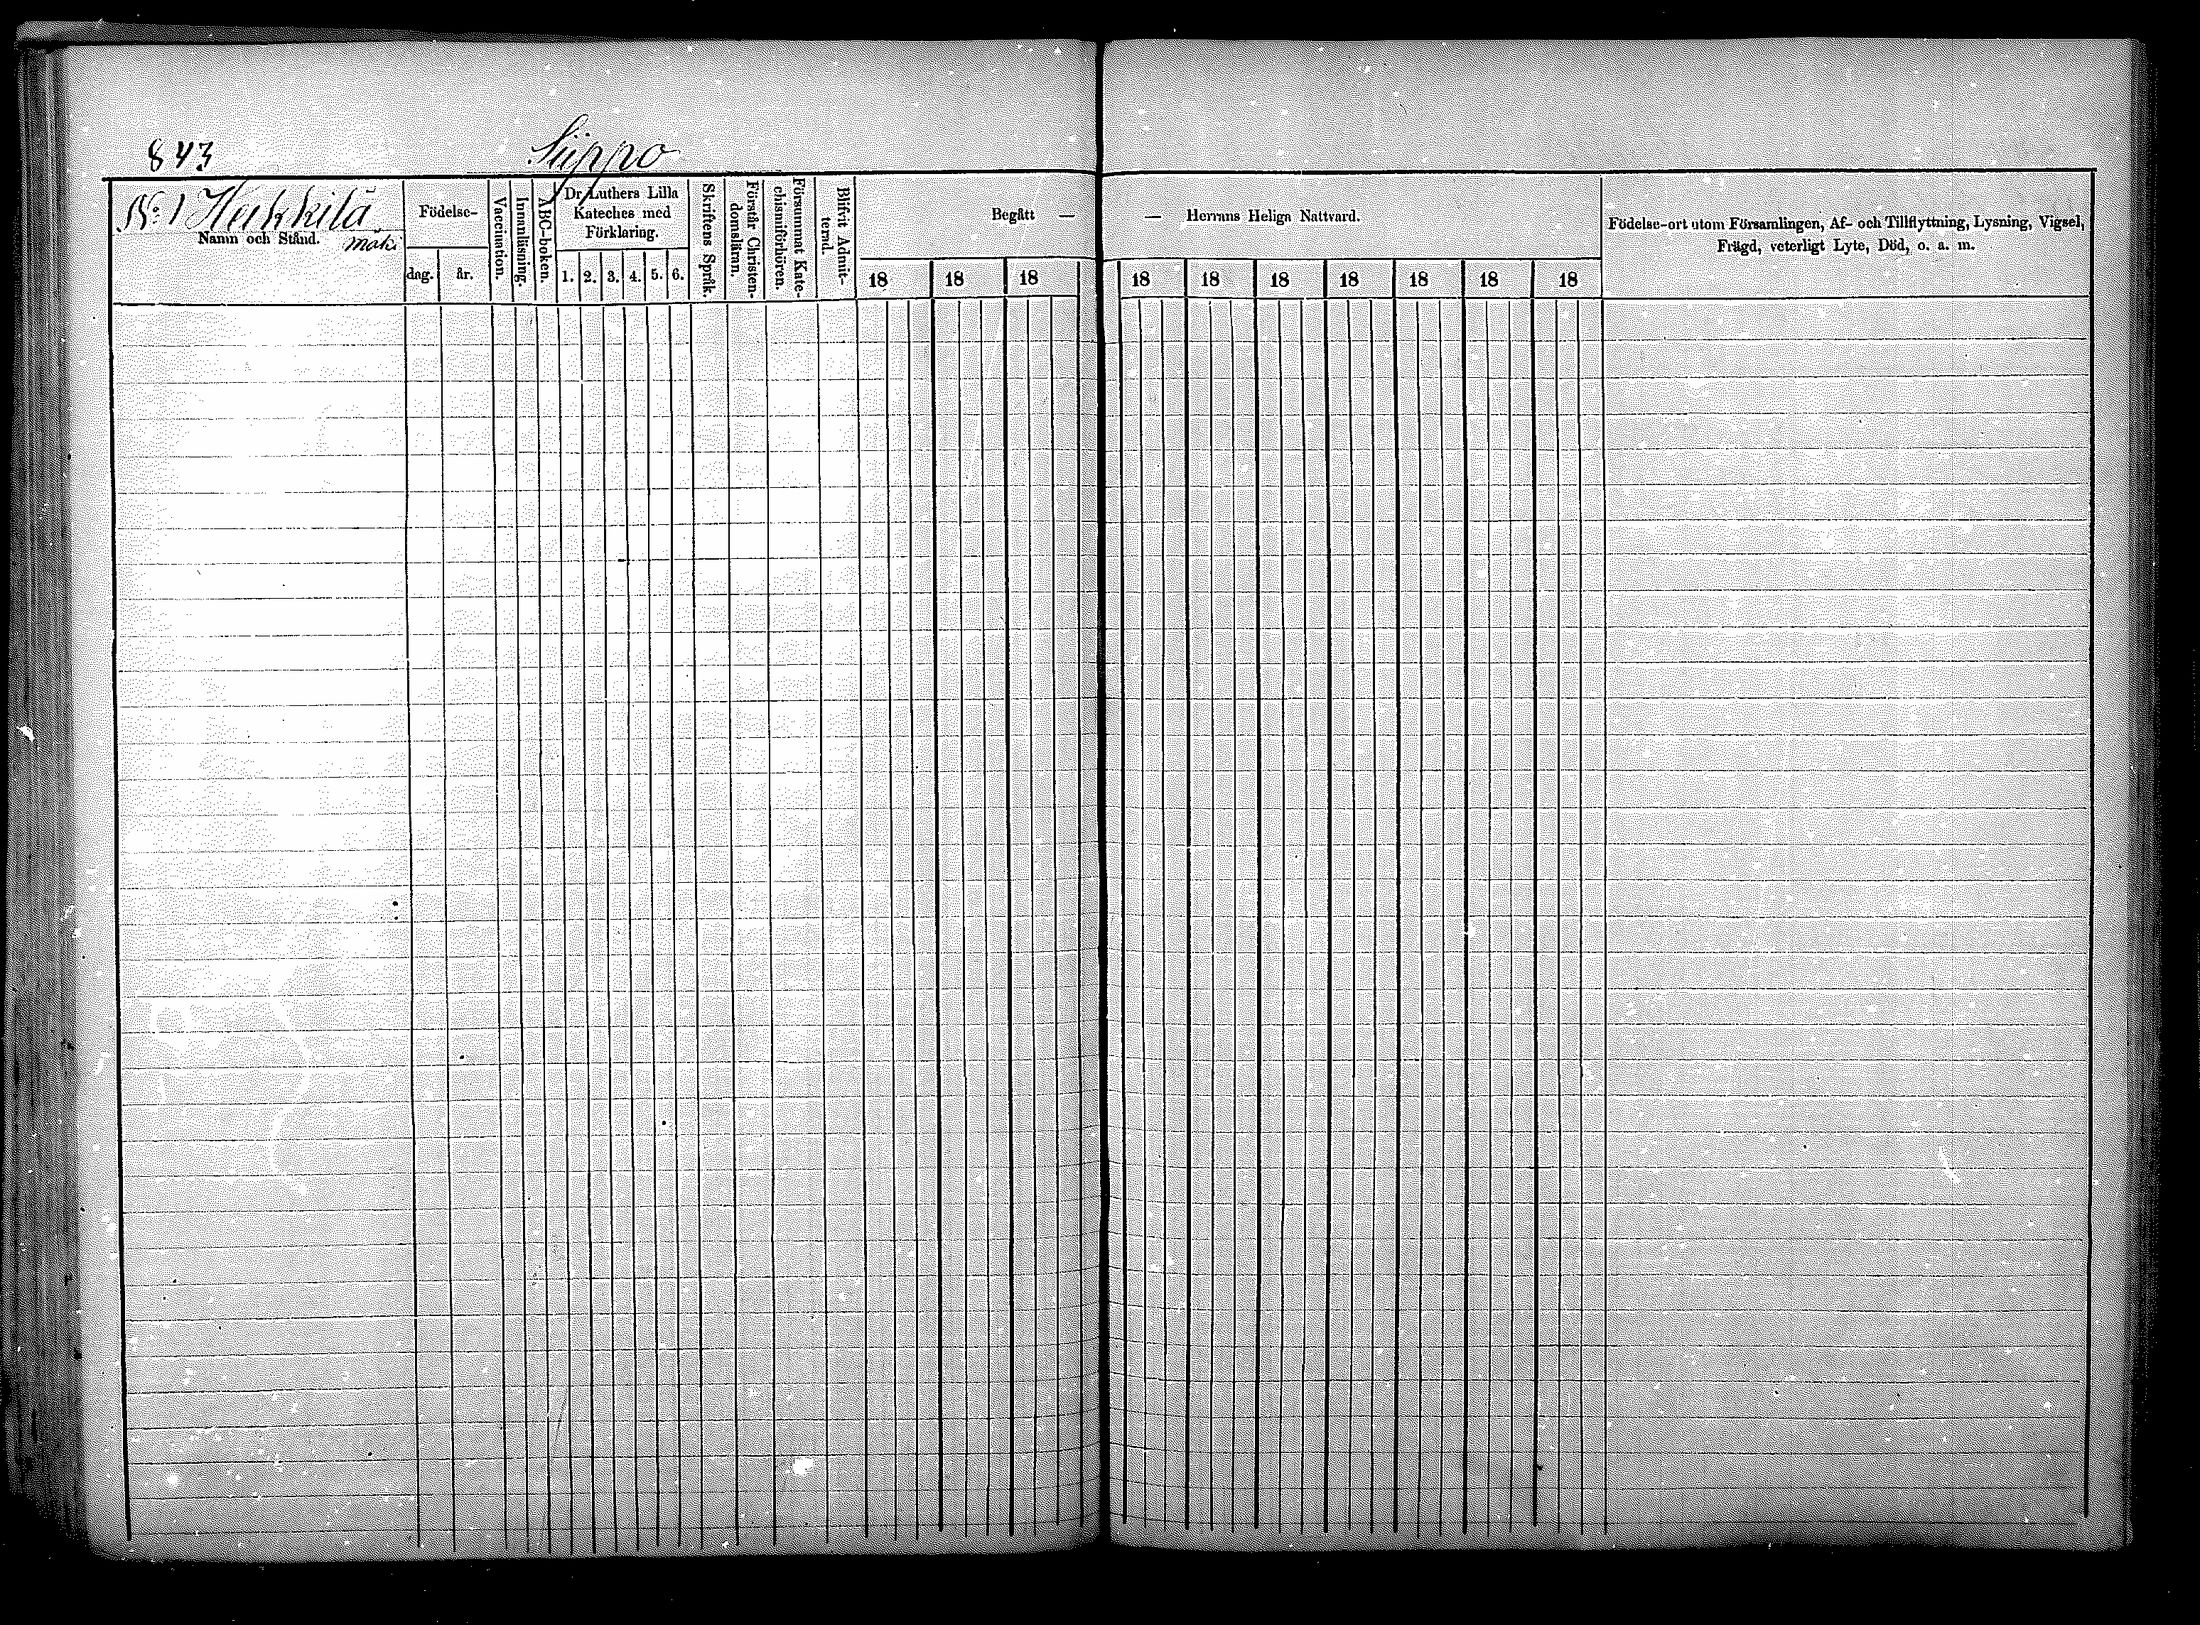 843
Sippo
No 1 Heikkilä
mäki
Namn och Stånd.
Födelse-
dag.
år.
Vaccination.
Innanläsning.
ABC-boken.
Dr Luthers Lilla
Kateches med
Förklaring.
1. 2. 3. 4. 5. 6.
Skriftens Språk.
Förstår Christen-
domsläran.
Försummat Kate-
chismiförhören.
Blifvit Admit-
terad.
Begått —
18 18 18
— Herrans Heliga Nattvard.
18 18 18 18 18 18 18
Födelse-ort utom Församlingen, Af- och Tillflyttning, Lysning, Vigsel,
Frägd, veterligt Lyte, Död, o. a. m.